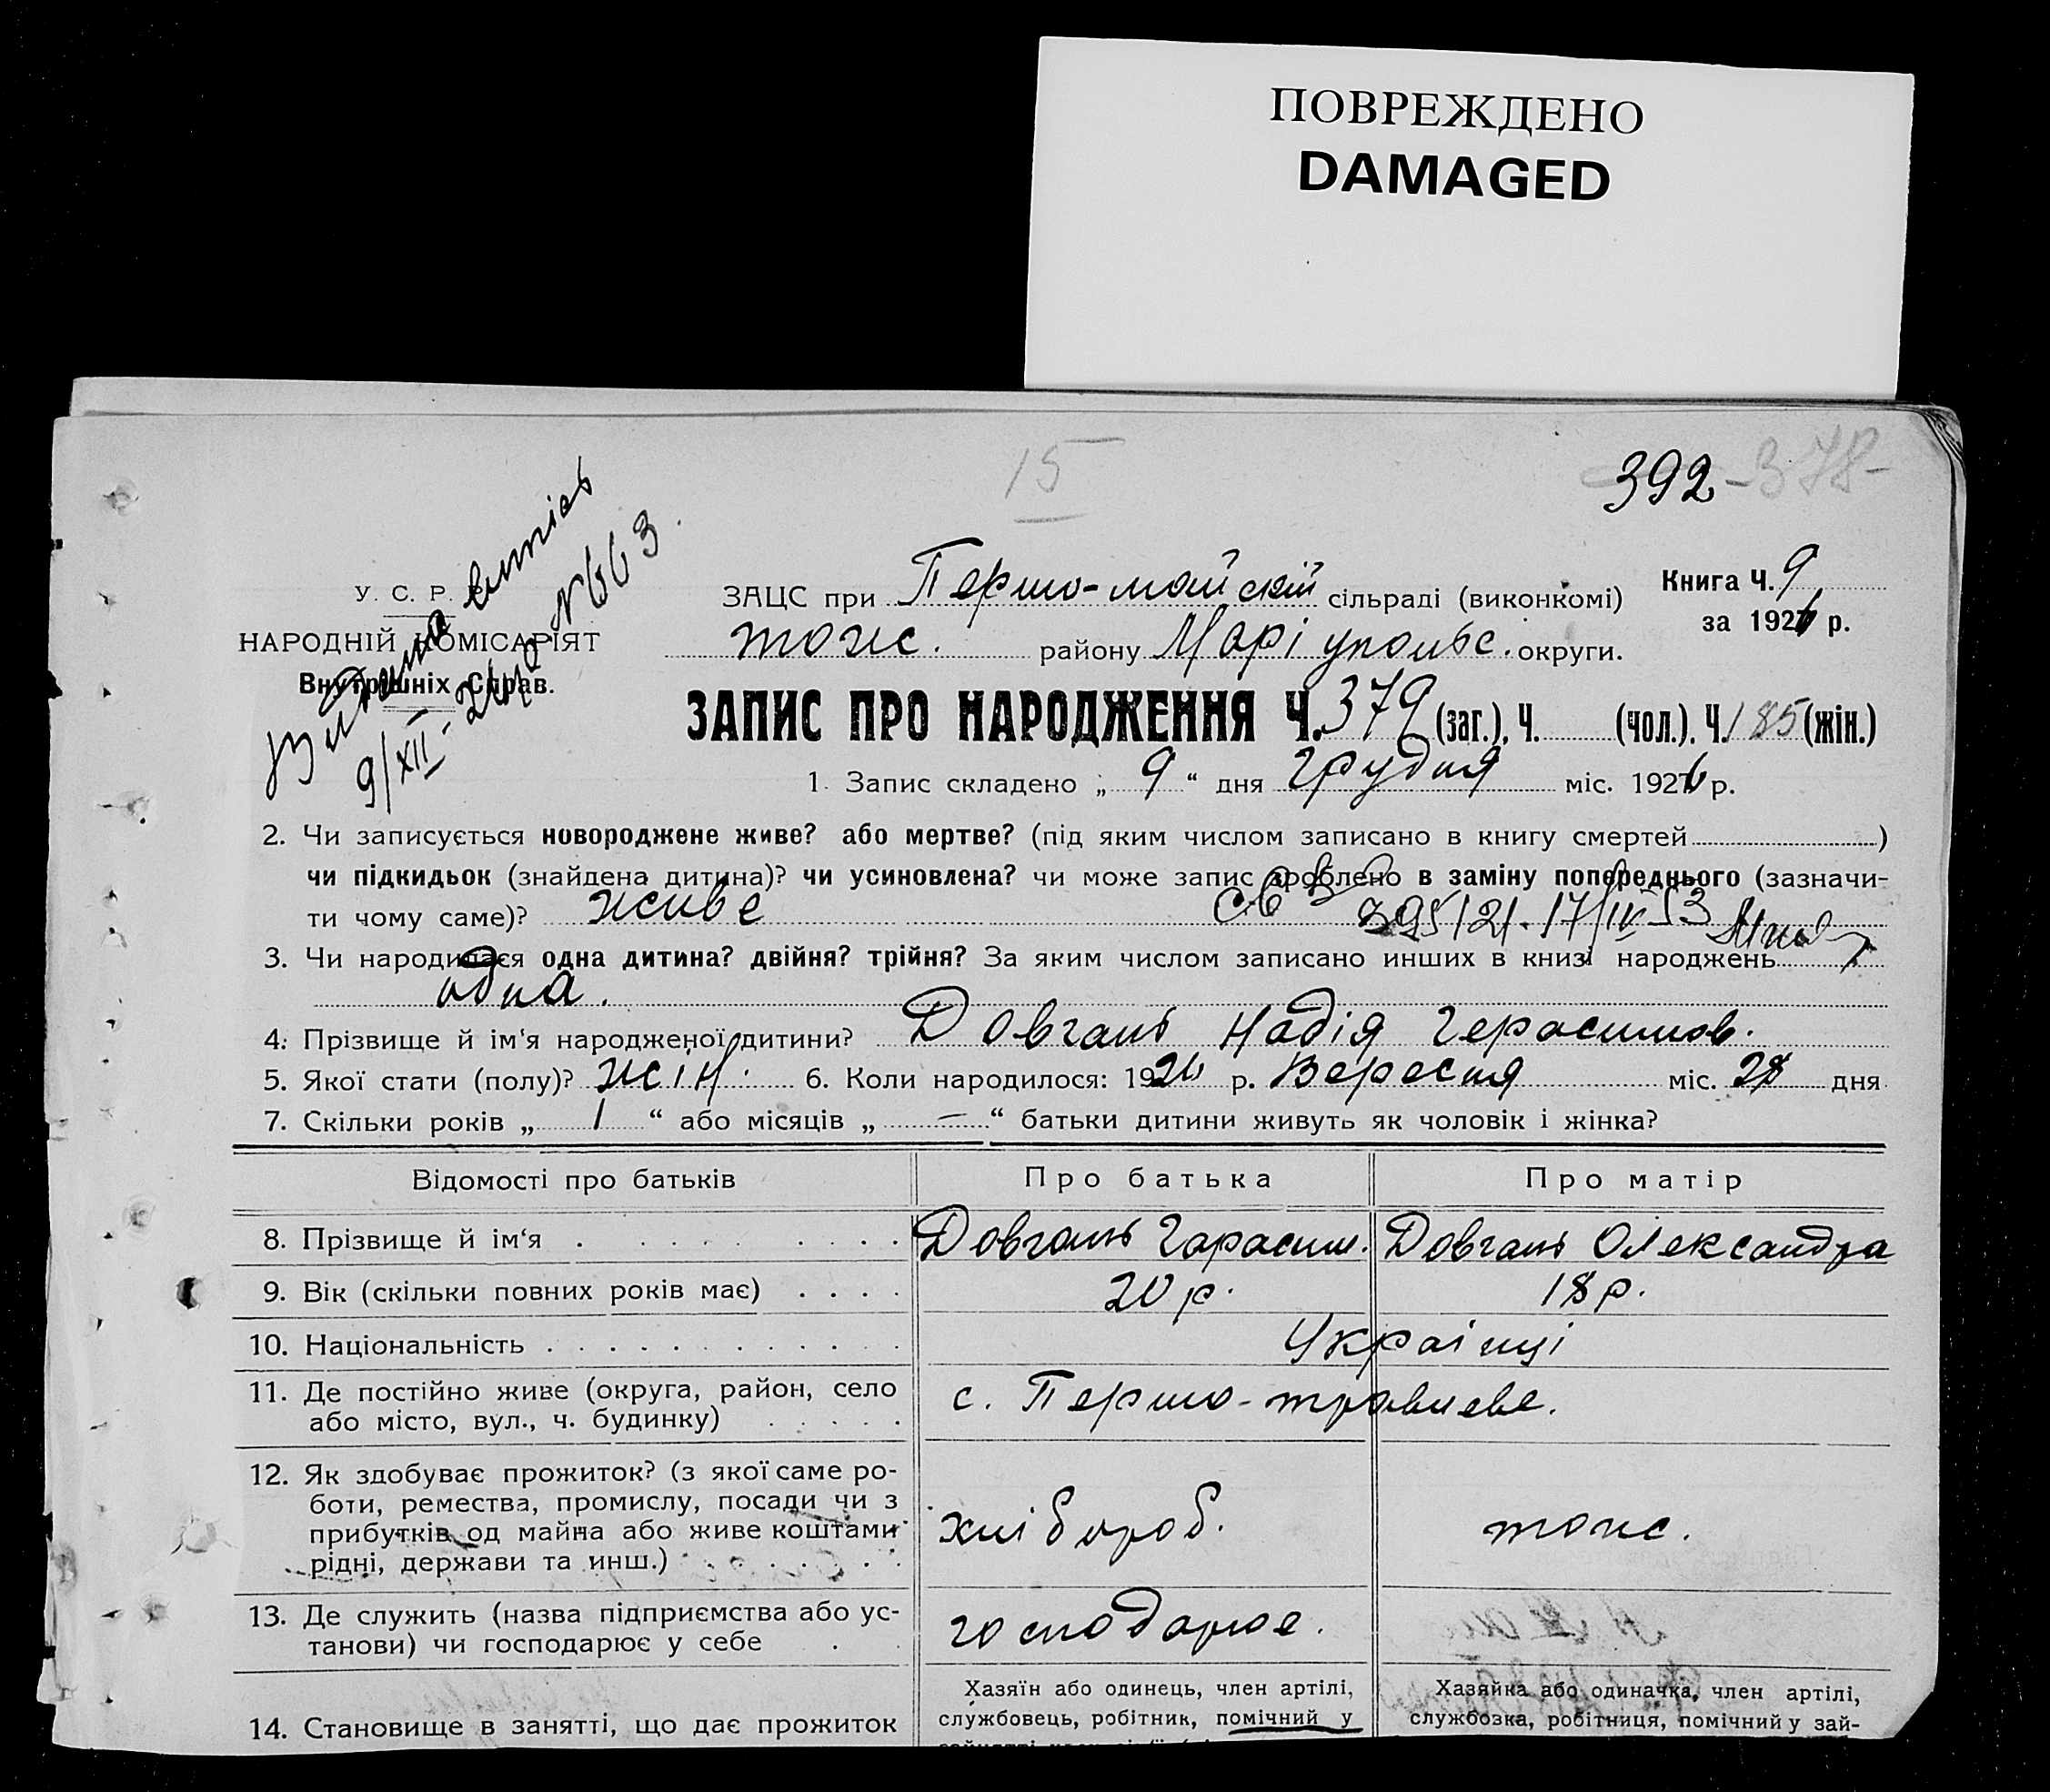 ПОВРЕЖДЕНО
DAMAGED
15
392 - 378 -
Видано витпісь
9/XII - 26 р. № 663.
У. С. Р. Р.
НАРОДНІЙ КОМІСАРІЯТ
Внутрішніх Справ.
ЗАЦС при Першо-майскій сільраді (виконкомі)
Книга Ч. 9
за 1926 р.
тоже. району Маріупольс. округи.
ЗАПИС ПРО НАРОДЖЕННЯ Ч. 379 (заг.), Ч. (чол.), Ч. 185 (жін.)
1. Запис складено „ 9 “ дня Грудня міс. 1926 р.
2. Чи записується новороджене живе? або мертве? (під яким числом записано в книгу смертей )
чи підкидьок (знайдена дитина)? чи усиновлена? чи може запис зроблено в заміну попереднього (зазначи-
ти чому саме)? живе
3. Чи народилася одна дитина? двійня? трійня? За яким числом записано инших в книзі народжень
одна.
4. Прізвище й ім‘я народженої дитини? Довгань Надія Герасимов.
5. Якої стати (полу)? жін. 6. Коли народилося: 1926 р. Вересня міс. 28 дня
7. Скільки років „ 1 “ або місяців „ — “ батьки дитини живуть як чоловік і жінка?
Відомості про батьків Про батька Про матір
8. Прізвище й ім‘я Довгань Гарасим. Довгань Олександра
9. Вік (скільки повних років має) 20 р. 18 р.
10. Національність Українці
11. Де постійно живе (округа, район, село
або місто, вул., ч. будинку) с. Першо-травневе.
12. Як здобуває прожиток? (з якої саме ро-
боти, ремества, промислу, посади чи з
прибутків од майна або живе коштами
рідні, держави та инш.) хлібороб. тоже.
13. Де служить (назва підприємства або ус-
танови) чи господарює у себе господарює.
14. Становище в занятті, що дає прожиток
Хазяїн або одинець, член артілі,
службовець, робітник, помічний у
Хазяйка або одиначка, член артілі,
службозка, робітниця, помічний у зай-